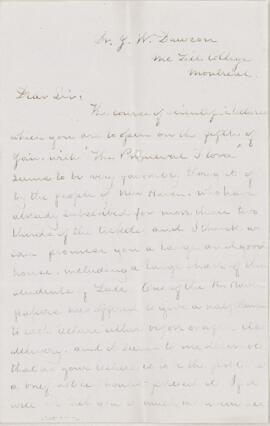 Dr. J. W. Dawson
McGill College
Montreal.
Dear Sir:
The course of scientific lectures
which you are to open on the fifth of
Jan. with "The Primeval Flora"
seems to be very favorably thought of
by the people of New Haven, who have
already subscribed for more than two
thirds of the tickets and I think we
can promise you a large and good
house, including a large share of the
students of Yale. One of the New Haven
papers has offered to give a
to each lecture either before or after its
delivery, and it seems to me
that as your lecture is the first
a brief notice
will